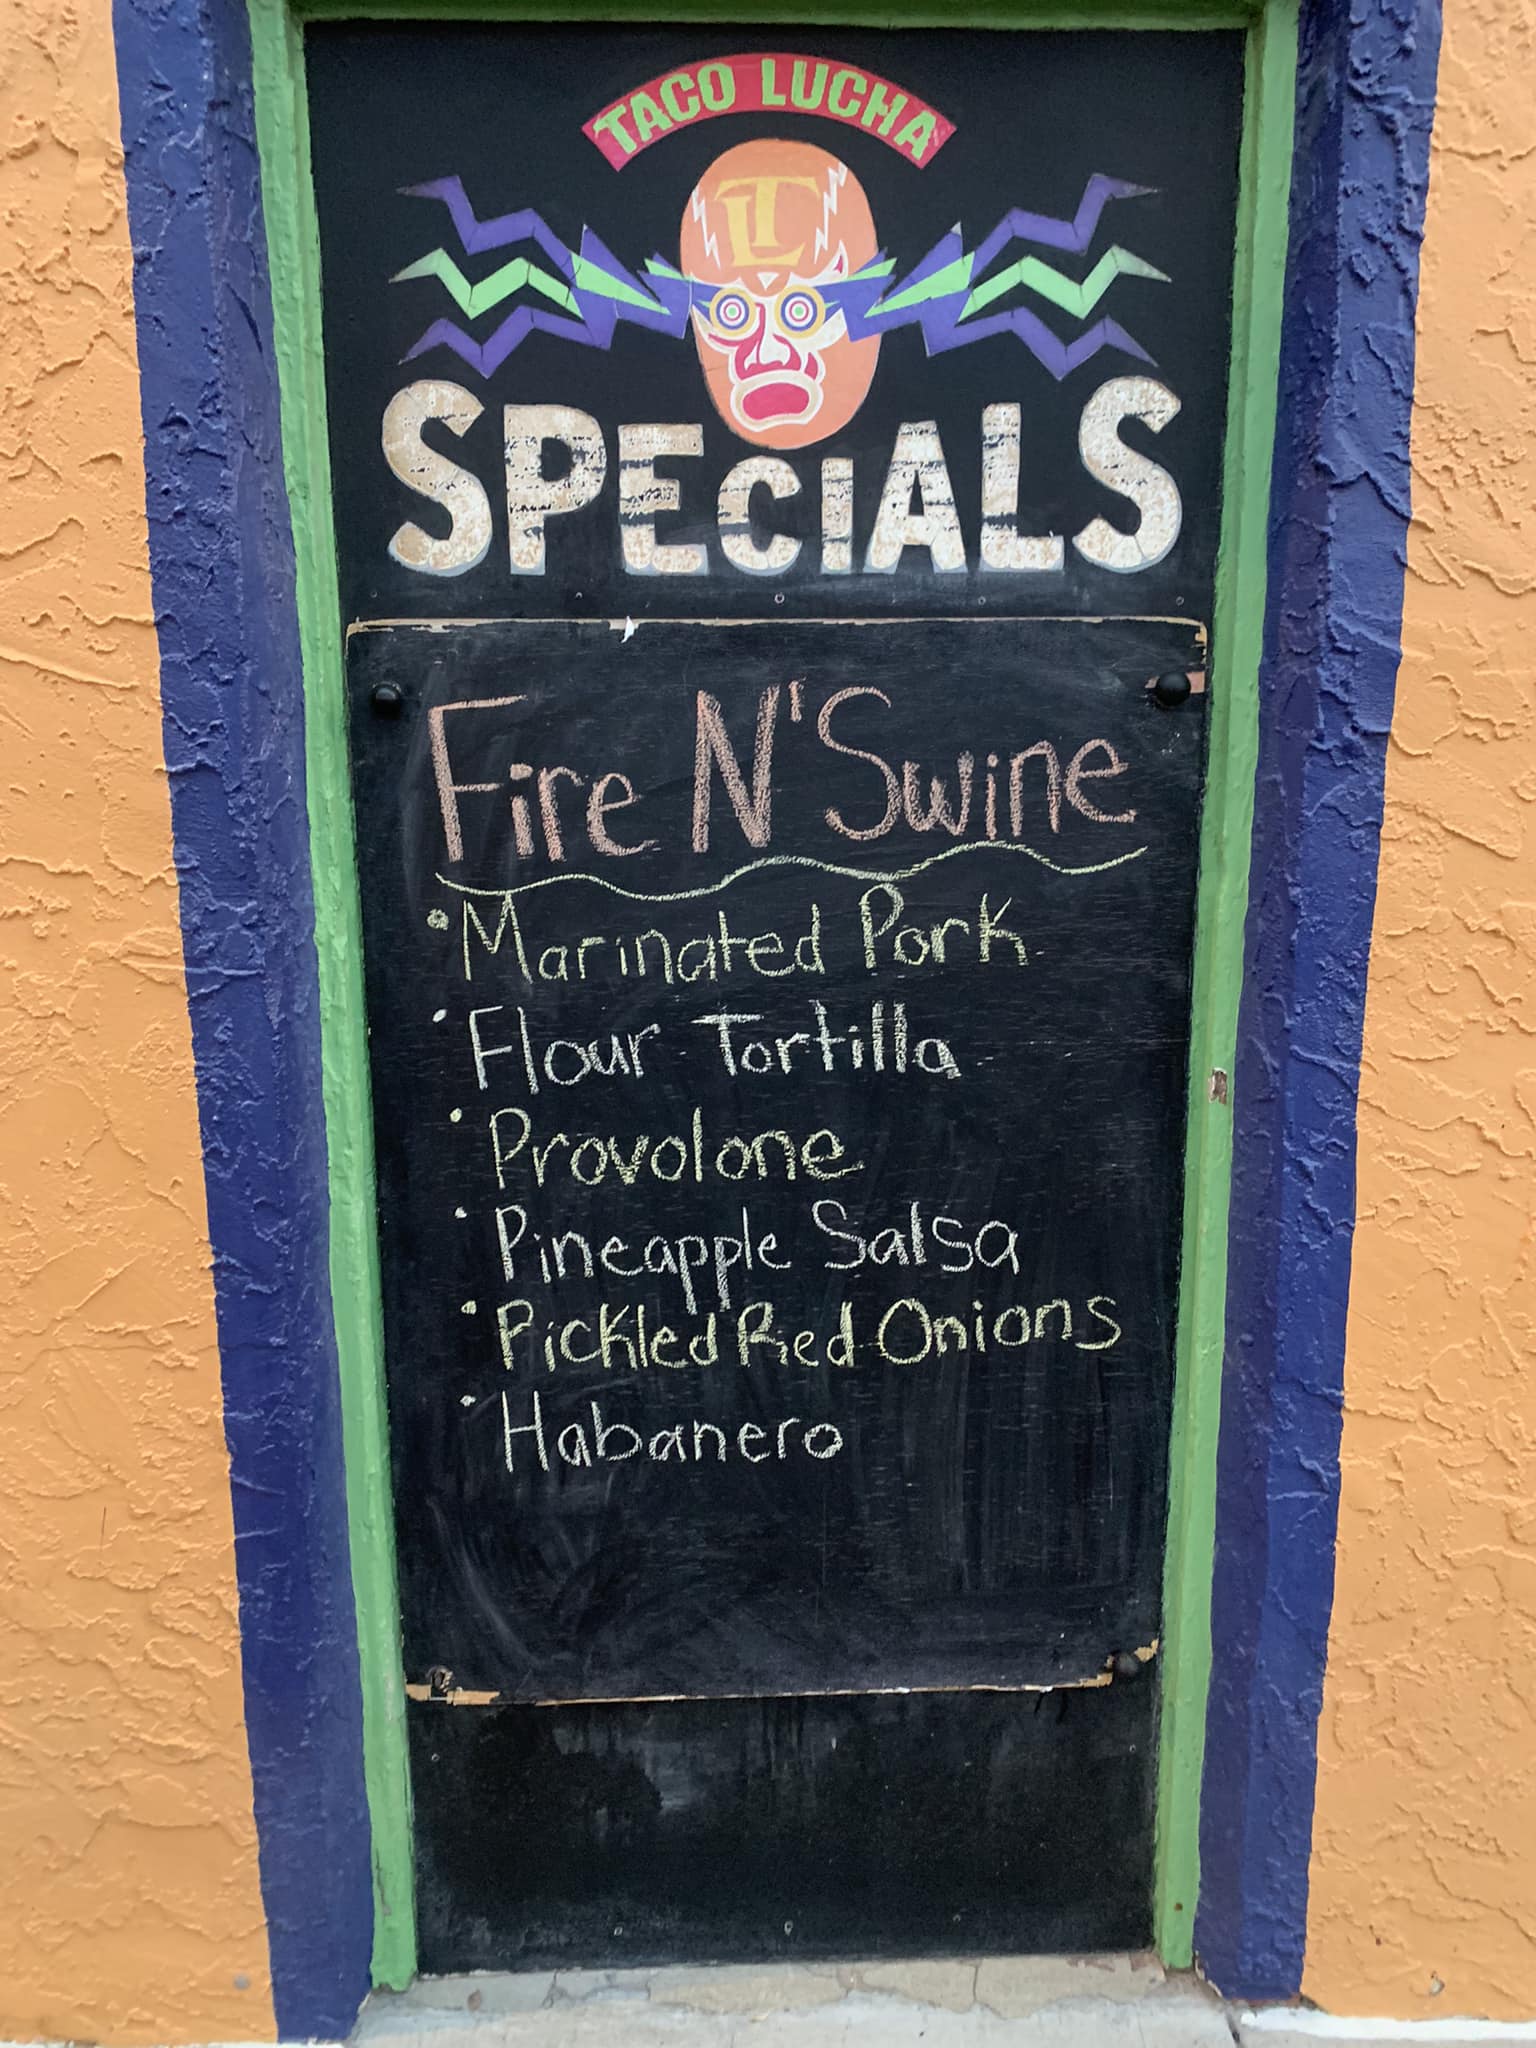 TACO LUCHA
TLC
SPECIALS
Fire N' Swine
• Marinated Pork
• Flour Tortilla
• Provolone
• Pineapple Salsa
• Pickled Red Onions
• Habanero